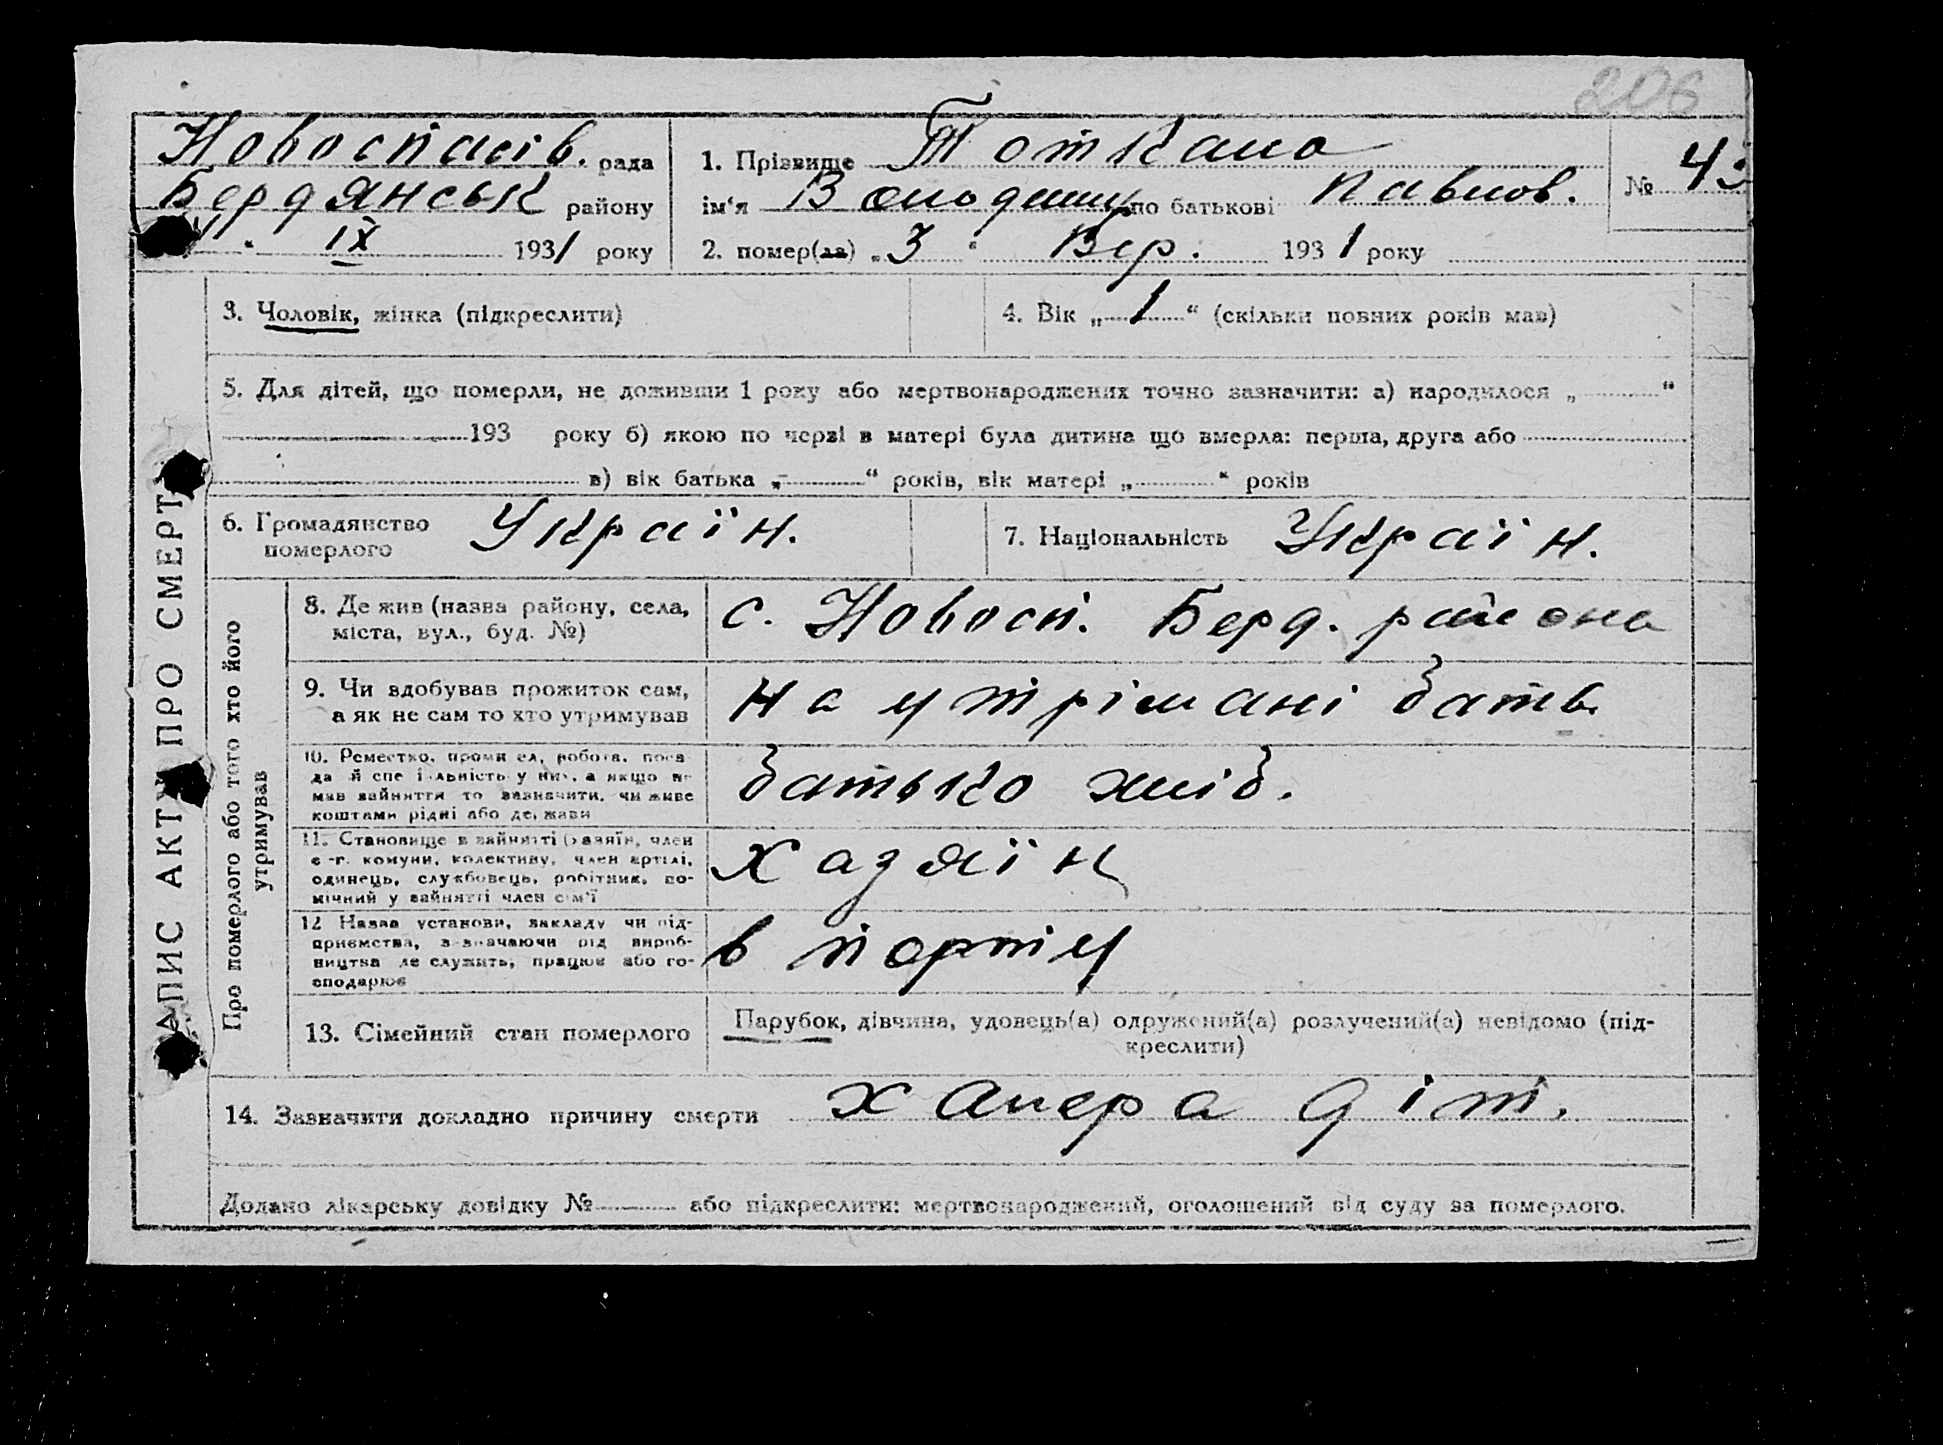 206
Новоспасів. рада
Бердянськ району
IX 1931 року
1. Прізвище Тоткало
ім'я Володимир по батькові Павлов.
№ 43
2. помер(ла) „3“ Вер. 1931 року
ЗАПИС АКТУ ПРО СМЕРТЬ
3. Чоловік, жінка (підкреслити)
4. Вік „1“ (скільки повних років мав)
5. Для дітей, що померли, не доживши 1 року або мертвонароджених точно зазначити: а) народилося „ “
193 року б) якою по черзі в матері була дитина що вмерла: перша, друга або
в) вік батька „ “ років, вік матері „ “ років
6. Громадянство померлого Україн.
7. Національність Україн.
Про померлого або того хто його утримував
8. Де жив (назва району, села,
міста, вул., буд. №)
с. Новосп. Берд. района
9. Чи здобував прожиток сам,
а як не сам то хто утримував
на утрімані батьк.
10. Ремество, промисел, робота, поса-
да й спеціальність у них, а якщо не
мав зайняття то зазначити, чи живе
коштами рідні або держави
батько хліб.
11. Становище в зайнятті (хазяїн, член
с.-г. комуни, колективу, член артілі,
одинець, службовець, робітник, по-
мічний у зайнятті член сім'ї
хазяїн
12 Назва установи, закладу чи під-
приємства, зазначаючи рід вироб-
ництва де служить, працює або го-
сподарює
в порту
13. Сімейний стан померлого
Парубок, дівчина, удовець(а) одружений(а) розлучений(а) невідомо (під-
креслити)
14. Зазначити докладно причину смерти холера діт.
Додано лікарську довідку № або підкреслити: мертвонароджений, оголошений від суду за померлого.